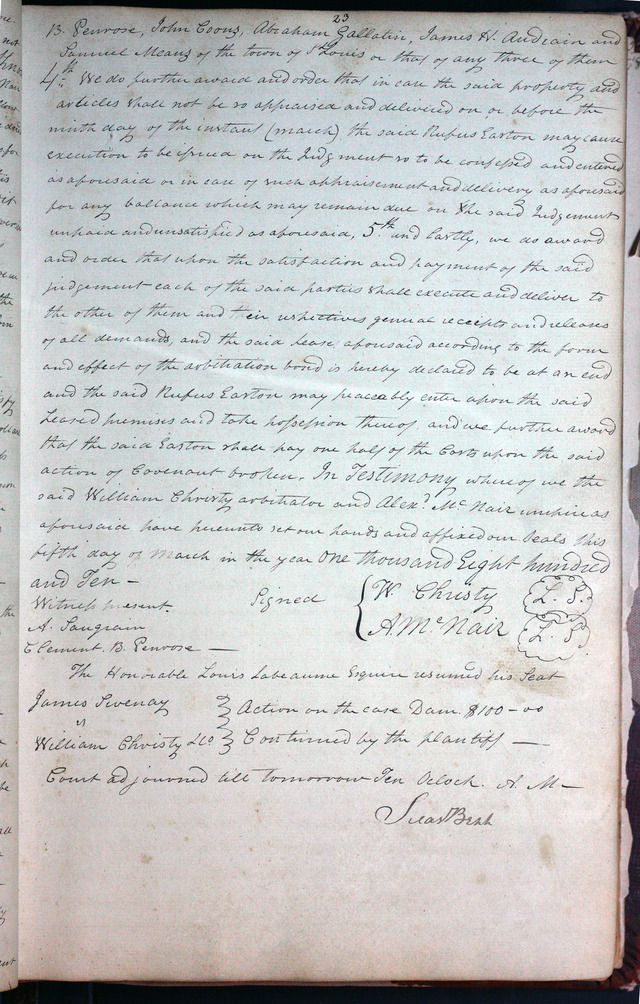 23
B. Penrose, John Coons, Abraham Gallatin, James H. Audrain and
Samuel Means of the town of St Louis or that of any three of them
4th We do further award and order that in case the said property and
articles shall not be so appraised and delivered on or before the
ninth day of the instant (march) the said Rufus Easton may cause
execution to be issued on the Judgment so to be confessed and entered
as aforesaid or in case of such appraisement and delivery as aforesaid
for any ballance which may remain due on the said Judgement
unpaid and unsatisfied as aforesaid, 5th and lastly, we do award
and order that upon the satisfaction and payment of the said
judgement each of the said parties shall execute and deliver to
the other of them and their respectives general receipts and releases
of all demands, and the said Lease aforesaid according to the form
and effect of the arbitration bond is hereby declared to be at an end
and the said Rufus Easton may peaceably enter upon the said
Leased premises and take possession thereof and we further award
that the said Easton shall pay one half of the Costs upon the said
action of Covenant broken. In Testimony whereof we the
said William Christy arbitrator and Alexd. McNair umpire as
aforesaid have hereunto set our hands and affixed our Seals this
fifth day of March in the year One thousand Eight hundred
and Ten -
Witness present Signed { W. Christy L. S.
A. Saugrain A. McNair L. S.
Clement B. Penrose —
The Honorable Louis Labeaume Esquire resumed his Seat
James Swenay } Action on the case Dam. $100-00
vs
William Christy & Co } Continued by the plantiff —
Court adjourned till tomorrow Ten Oclock. A. M—
Silas Bent